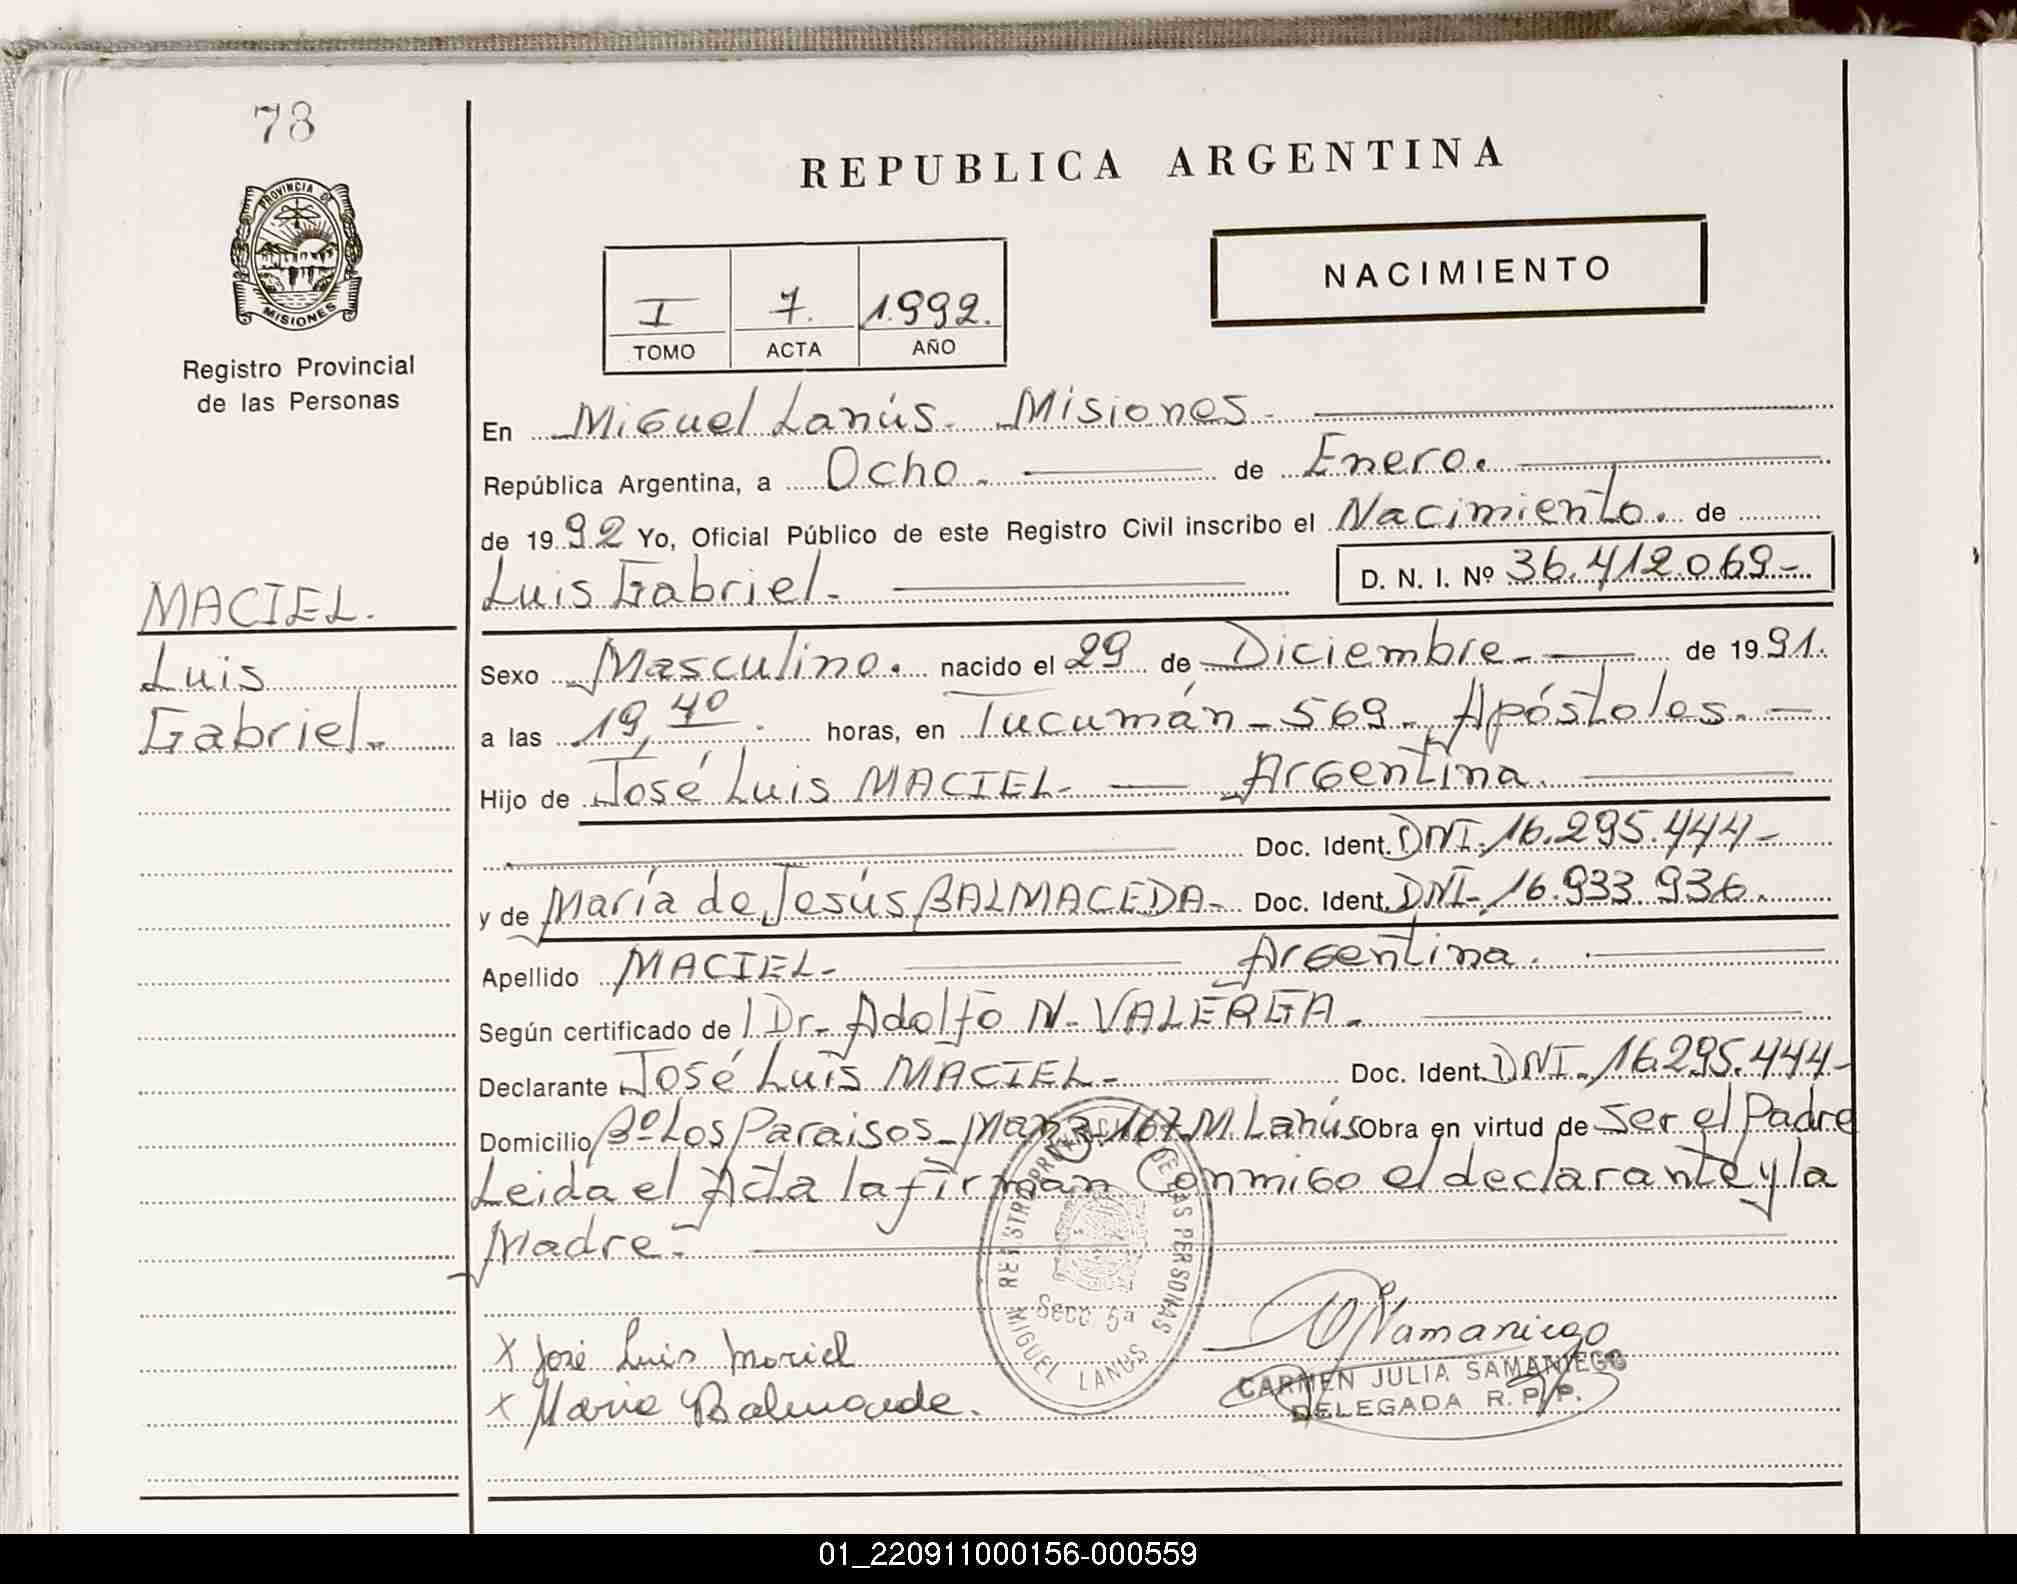 78
PROVINCIA DE
MISIONES
Registro Provincial
de las Personas
MACIEL.
Luis
Gabriel.
REPUBLICA ARGENTINA
NACIMIENTO
I 7. 1.992.
TOMO ACTA AÑO
En Miguel Lanús. Misiones.
República Argentina, a Ocho. de Enero.
de 19 92 Yo, Oficial Público de este Registro Civil inscribo el Nacimiento. de
Luis Gabriel. D. N. I. Nº 36.412.069-
Sexo Masculino. nacido el 29 de Diciembre. de 19 91.
a las 19,40. horas, en Tucumán-569- Apóstoles.
Hijo de José Luis MACIEL. Argentina.
Doc. Ident. DNI. 16.295.444-
y de María de Jesús BALMACEDA- Doc. Ident. DNI-16.933.936.
Apellido MACIEL- Argentina.
Según certificado de Dr. Adolfo N. VALERGA.
Declarante José Luis MACIEL- Doc. Ident. DNI. 16.295.444-
Domicilio Bº Los Paraisos- Manz. 167 M. Lanús Obra en virtud de Ser el Padre
Leida el Acta la firman Conmigo el declarante y la
Madre.
REGISTRO PROVINCIAL DE LAS PERSONAS
Secc. 5ª
MIGUEL LANUS
X José Luis Maciel
X Maria Balmaceda.
Samaniego
CARMEN JULIA SAMANIEGO
DELEGADA R. P. P.
01_220911000156-000559